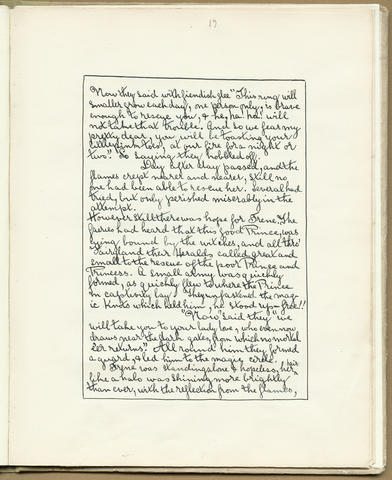 19
"Now they said with fiendish glee "This ring will
smaller grow each day, one person only, is brave
enough to rescue you, & he, ha! ha! will
not take that trouble. And so we fear my
pretty dear, you will be toasting your
little pink toes, at our fire for a night or
two." So saying they hobbled off.
Day after day passed, and the
flames crept nearer and nearer, still no
one had been able to rescue her. Several had
tried, but only perished miserably in the
attempt.
However still there was hope for Irene. The
fairies had heard that this good Prince, was
lying bound by the witches, and all thro'
Fairyland their Heralds called great and
small to the rescue of the poor Prince and
Princess. A small army was quickly
formed, as quickly flew to where the Prince
in captivity lay. They unfastened the mag-
ic knots which held him, he stood up free!!
"Now" said they "we
will take you to your lady love, who even now
draws near the dark gates, from which no mortal
e'er returns". All round him they formed
a guard, & led him to the magic circle.
Irene was standing alone & hopeless, her hair
like a halo was shining more brightly
than ever, with the reflection from the flames,